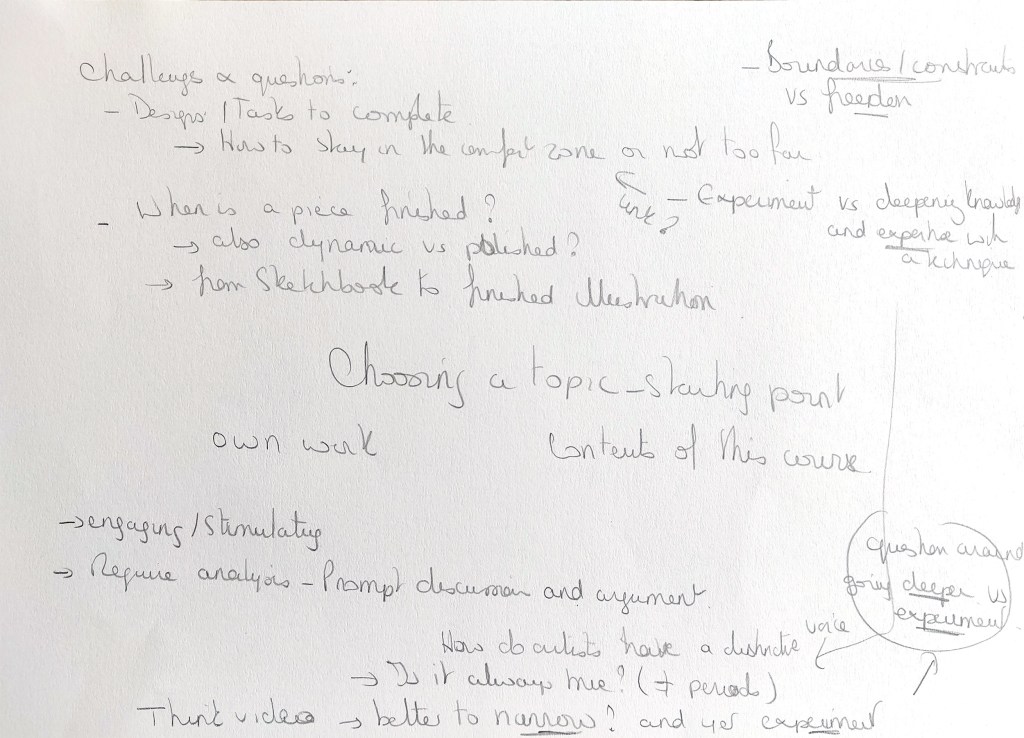 Challenges & questions:
- Designs / Tasks to complete
→ How to stay in the comfort zone or not too far
- When is a piece finished?
→ also dynamic vs polished?
→ from Sketchbook to finished illustration
- Boundaries / constraints
vs freedom
link?
- Experiment vs deepening knowledge
and expertise with
a technique
Choosing a topic - starting point
own work
Contents of this course
→ engaging / Stimulating
→ Require analysis - Prompt discussion and argument.
question around
going deeper vs
experiment.
How do artists have a distinctive voice
→ Is it always true? (≠ periods)
Think video → better to narrow? and yet experiment